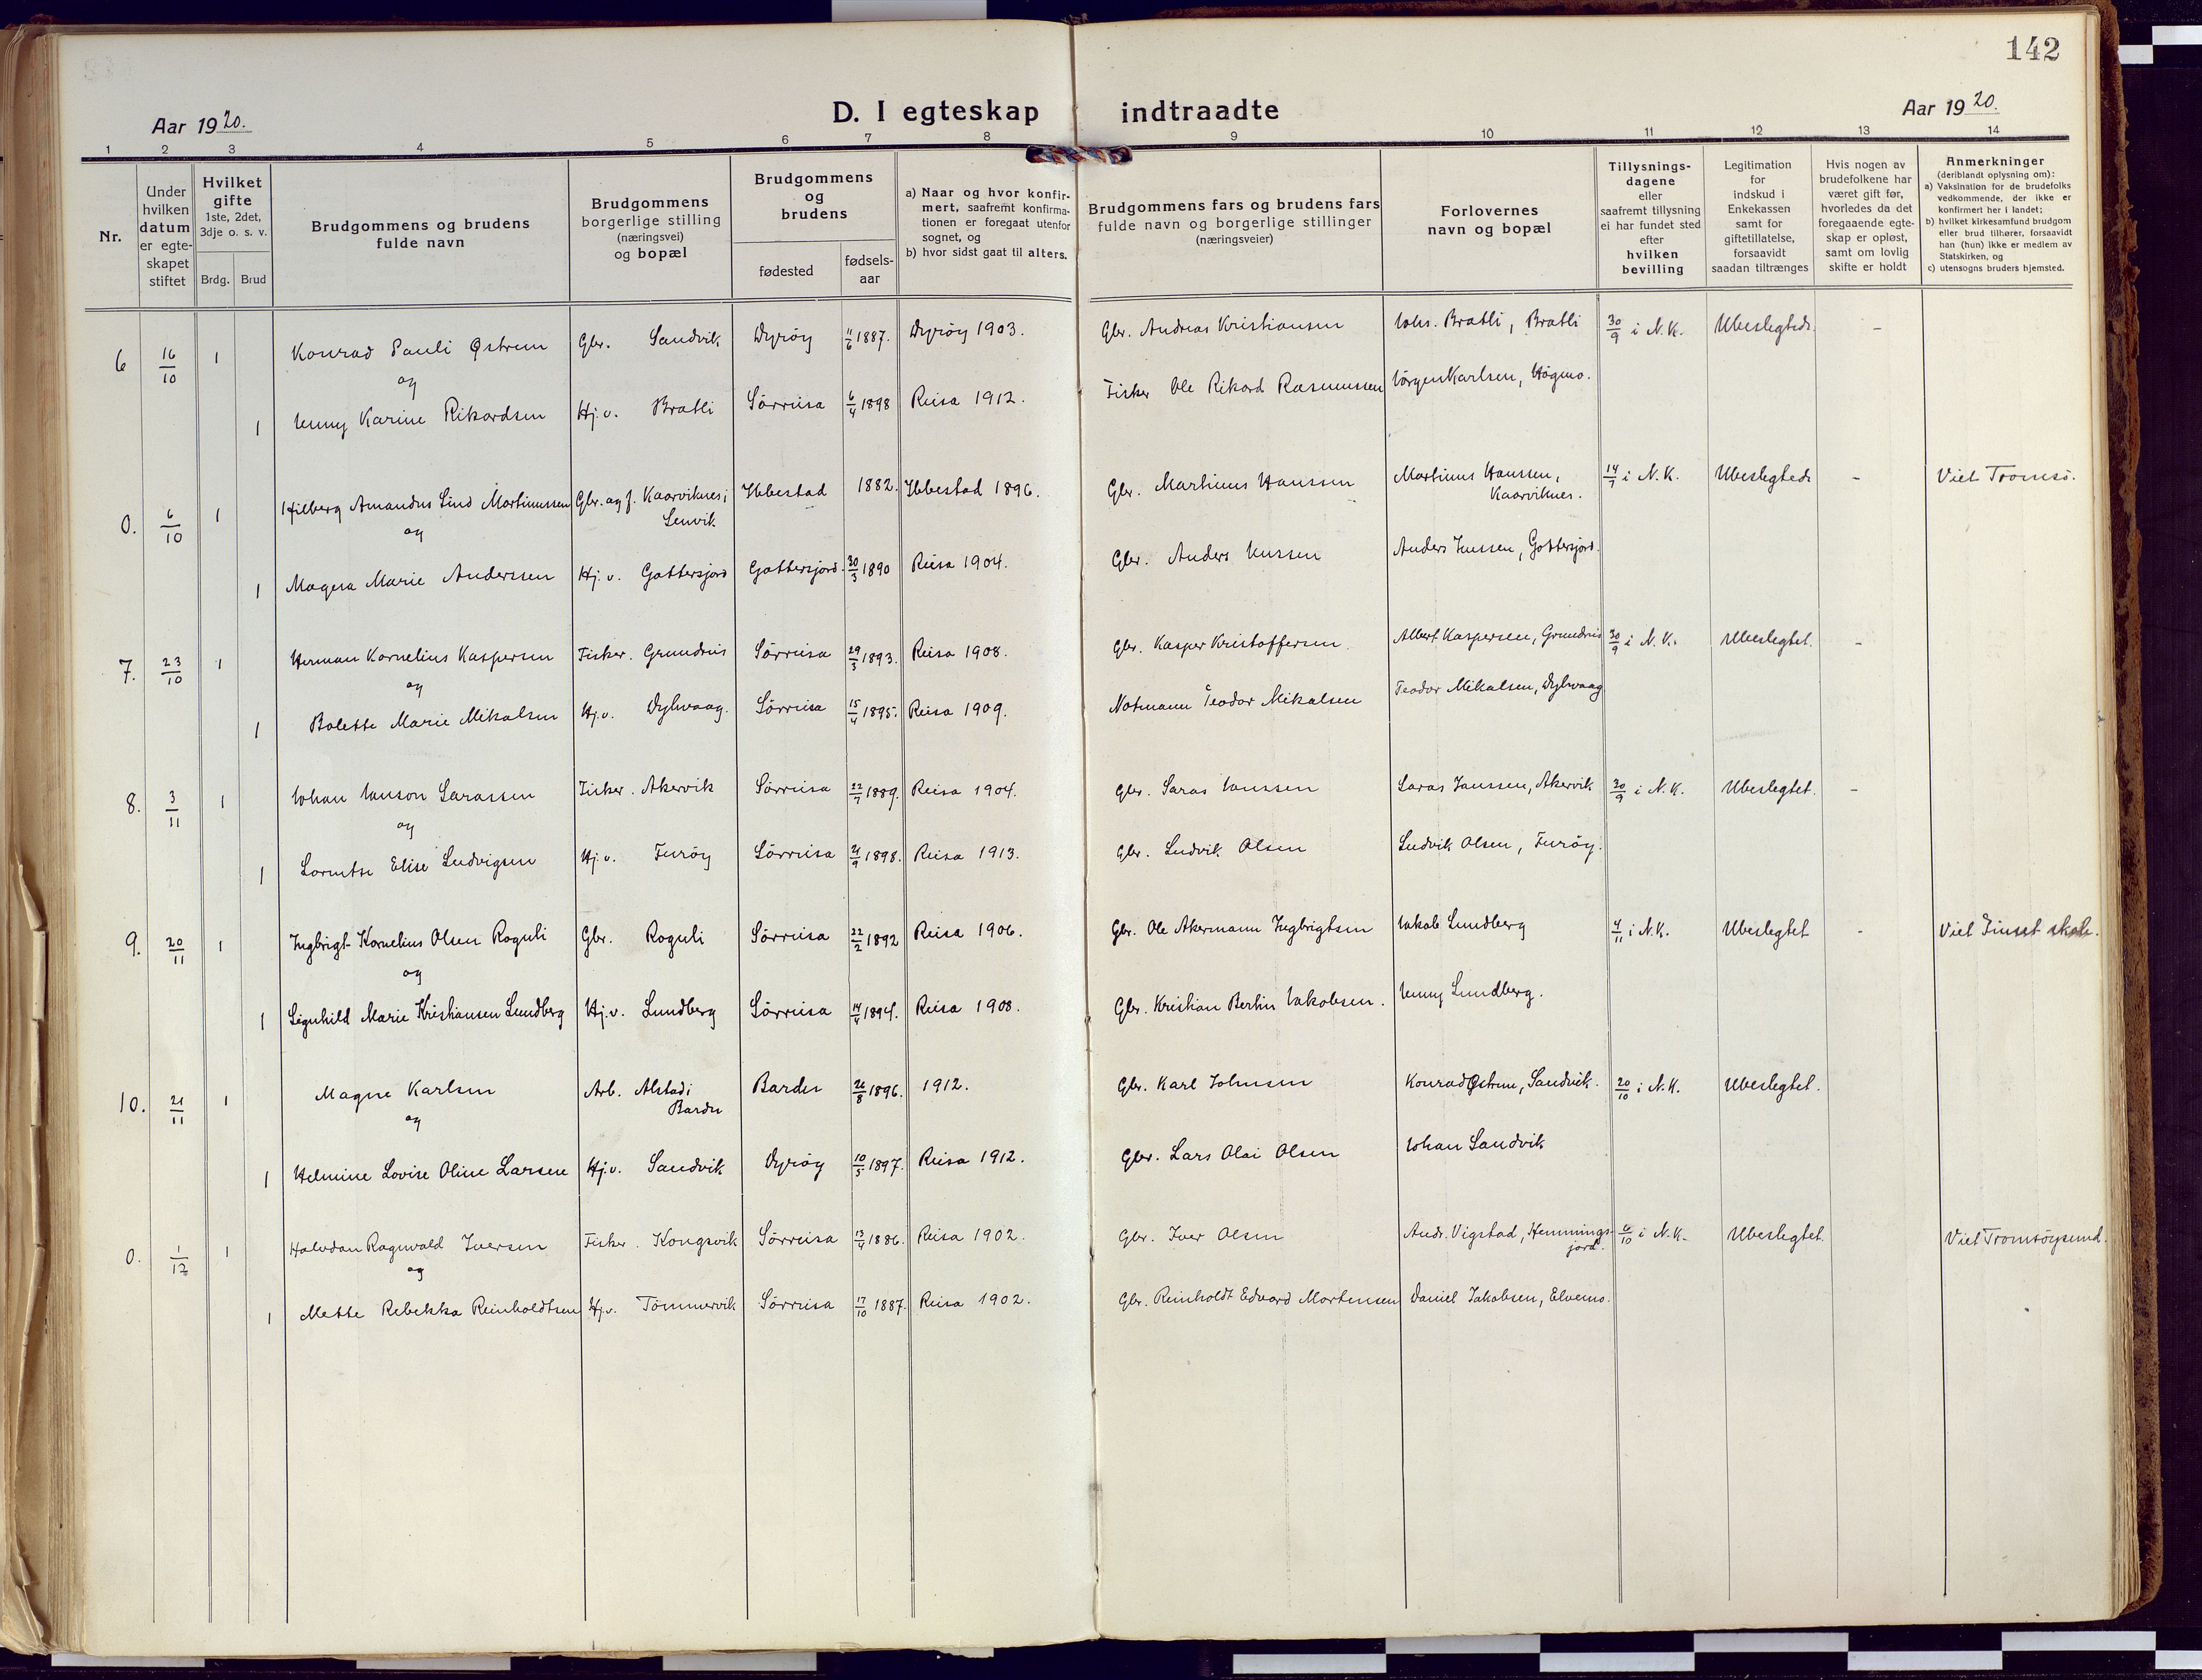 142
Aar 1920.
D. I egteskap indtraadte
Aar 1920.
1 2 3 4 5 6 7 8 9 10 11 12 13 14
Nr.
Under hvilken datum er egte-skapet stiftet
Hvilket gifte 1ste, 2det, 3dje o. s. v.
Brdg. Brud
Brudgommens og brudens fulde navn
Brudgommens borgerlige stilling (næringsvei) og bopæl
Brudgommens og brudens
fødested
fødsels-aar
a) Naar og hvor konfir-mert, saafremt konfirma-tionen er foregaat utenfor sognet, og
b) hvor sidst gaat til alters.
Brudgommens fars og brudens fars fulde navn og borgerlige stillinger (næringsveier)
Forlovernes navn og bopæl
Tillysnings-dagene eller saafremt tillysning ei har fundet sted efter hvilken bevilling
Legitimation for indskud i Enkekassen samt for giftetillatelse, forsaavidt saadan tiltrænges
Hvis nogen av brudefolkene har været gift før, hvorledes da det foregaaende egte-skap er opløst, samt om lovlig skifte er holdt
Anmerkninger (deriblandt oplysning om):
a) Vaksination for de brudefolks vedkommende, der ikke er konfirmert her i landet;
b) hvilket kirkesamfund brudgom eller brud tilhører, forsaavidt han (hun) ikke er medlem av Statskirken, og
c) utensogns bruders hjemsted.
6 16/10 1 Konrad Pauli Østrem Gbr. Sandvik Dyrøy 11/6 1887. Dyrøy 1903. Gbr. Andreas Kristiansen Johs. Bratli, Bratli 30/9 i N.K. Ubeslegtede. -
og
1 Jenny Karine Rikardsen Hj.v. Bratli Sörreisa 6/4 1898 Reisa 1912. Fisker Ole Rikard Rasmussen Jörgen Karlsen, Högmo.
0. 6/10 1 Hilberg Amandus Lind Martinussen Gbr. og f. Kaarviknes i Ibbestad 1882. Ibbestad 1896. Gbr. Martinus Hanssen Martinus Hanssen, 14/7 i N.K. Ubeslegtede - Viet Tromsö.
Lenvik Kaarviknes.
og
1 Magna Marie Anderssen Hj.v. Gottersjord Gottersjord. 30/3 1890 Reisa 1904. Gbr. Anders Jenssen Anders Jenssen, Gottersjord.
7. 23/10 1 Herman Kornelius Kaspersen Fisker. Grundnes Sörreisa 29/3 1893. Reisa 1908. Gbr. Kasper Kristoffersen. Albert Kaspersen, Grundnes 30/9 i N.K. Ubeslegtet. -
og
1 Bolette Marie Mikalsen Hj.v. Dylvaag. Sörreisa 15/4 1895. Reisa 1909. Notmann Teodor Mikalsen Teodor Mikalsen, Dylvaag
8. 3/11 1 Johan Janson Larassen Fisker. Akervik Sörreisa 22/7 1889. Reisa 1904. Gbr. Laras Janssen Laras Janssen, Akervik 30/9 i N.K. Ubeslegtet. -
og
1 Lorentse Elise Ludvigsen Hj.v. Furöy Sörreisa 21/9 1898. Reisa 1913. Gbr. Ludvik Olsen Ludvik Olsen, Furöy.
9. 20/11 1 Ingbrigt Kornelius Olsen Roguli Gbr. Roguli Sörreisa 22/2 1892 Reisa 1906. Gbr. Ole Akermann Ingbrigtsen Jakob Lundberg 4/11 i N.K. Ubeslegtet - Viet
og
1 Signhild Marie Kristiansen Lundberg Hj.v. Lundberg Sörreisa 14/4 1894. Reisa 1908. Gbr. Kristian Bertin Jakobsen. Jenny Lundberg.
10. 21/11 1 Magne Karlsen Arb. Alstad i Bardu 26/8 1896. 1912. Gbr. Karl Johnsen Konrad Østrem, Sandvik. 20/10 i N.K. Ubeslegtet.
Bardu
og
1 Helmine Lovise Oline Larsen Hj.v. Sandvik Dyröy 10/5 1897. Reisa 1912. Gbr. Lars Olai Olsen Johan Sandvik
0. 1/12 1 Halvdan Ragnvald Iversen Fisker. Kongsvik Sörreisa 13/4 1886. Reisa 1902. Gbr. Iver Olsen Andr. Vigstad, Hemmings- 6/10 i N.K. Ubeslegtet. Viet Tromsöysund.
jord.
og
1 Mette Rebekka Reinholdtsen Hj.v. Tömmervik Sörreisa 17/10 1887. Reisa 1902. Gbr. Reinholdt Edvard Mortensen Daniel Jakobsen, Elvemo.